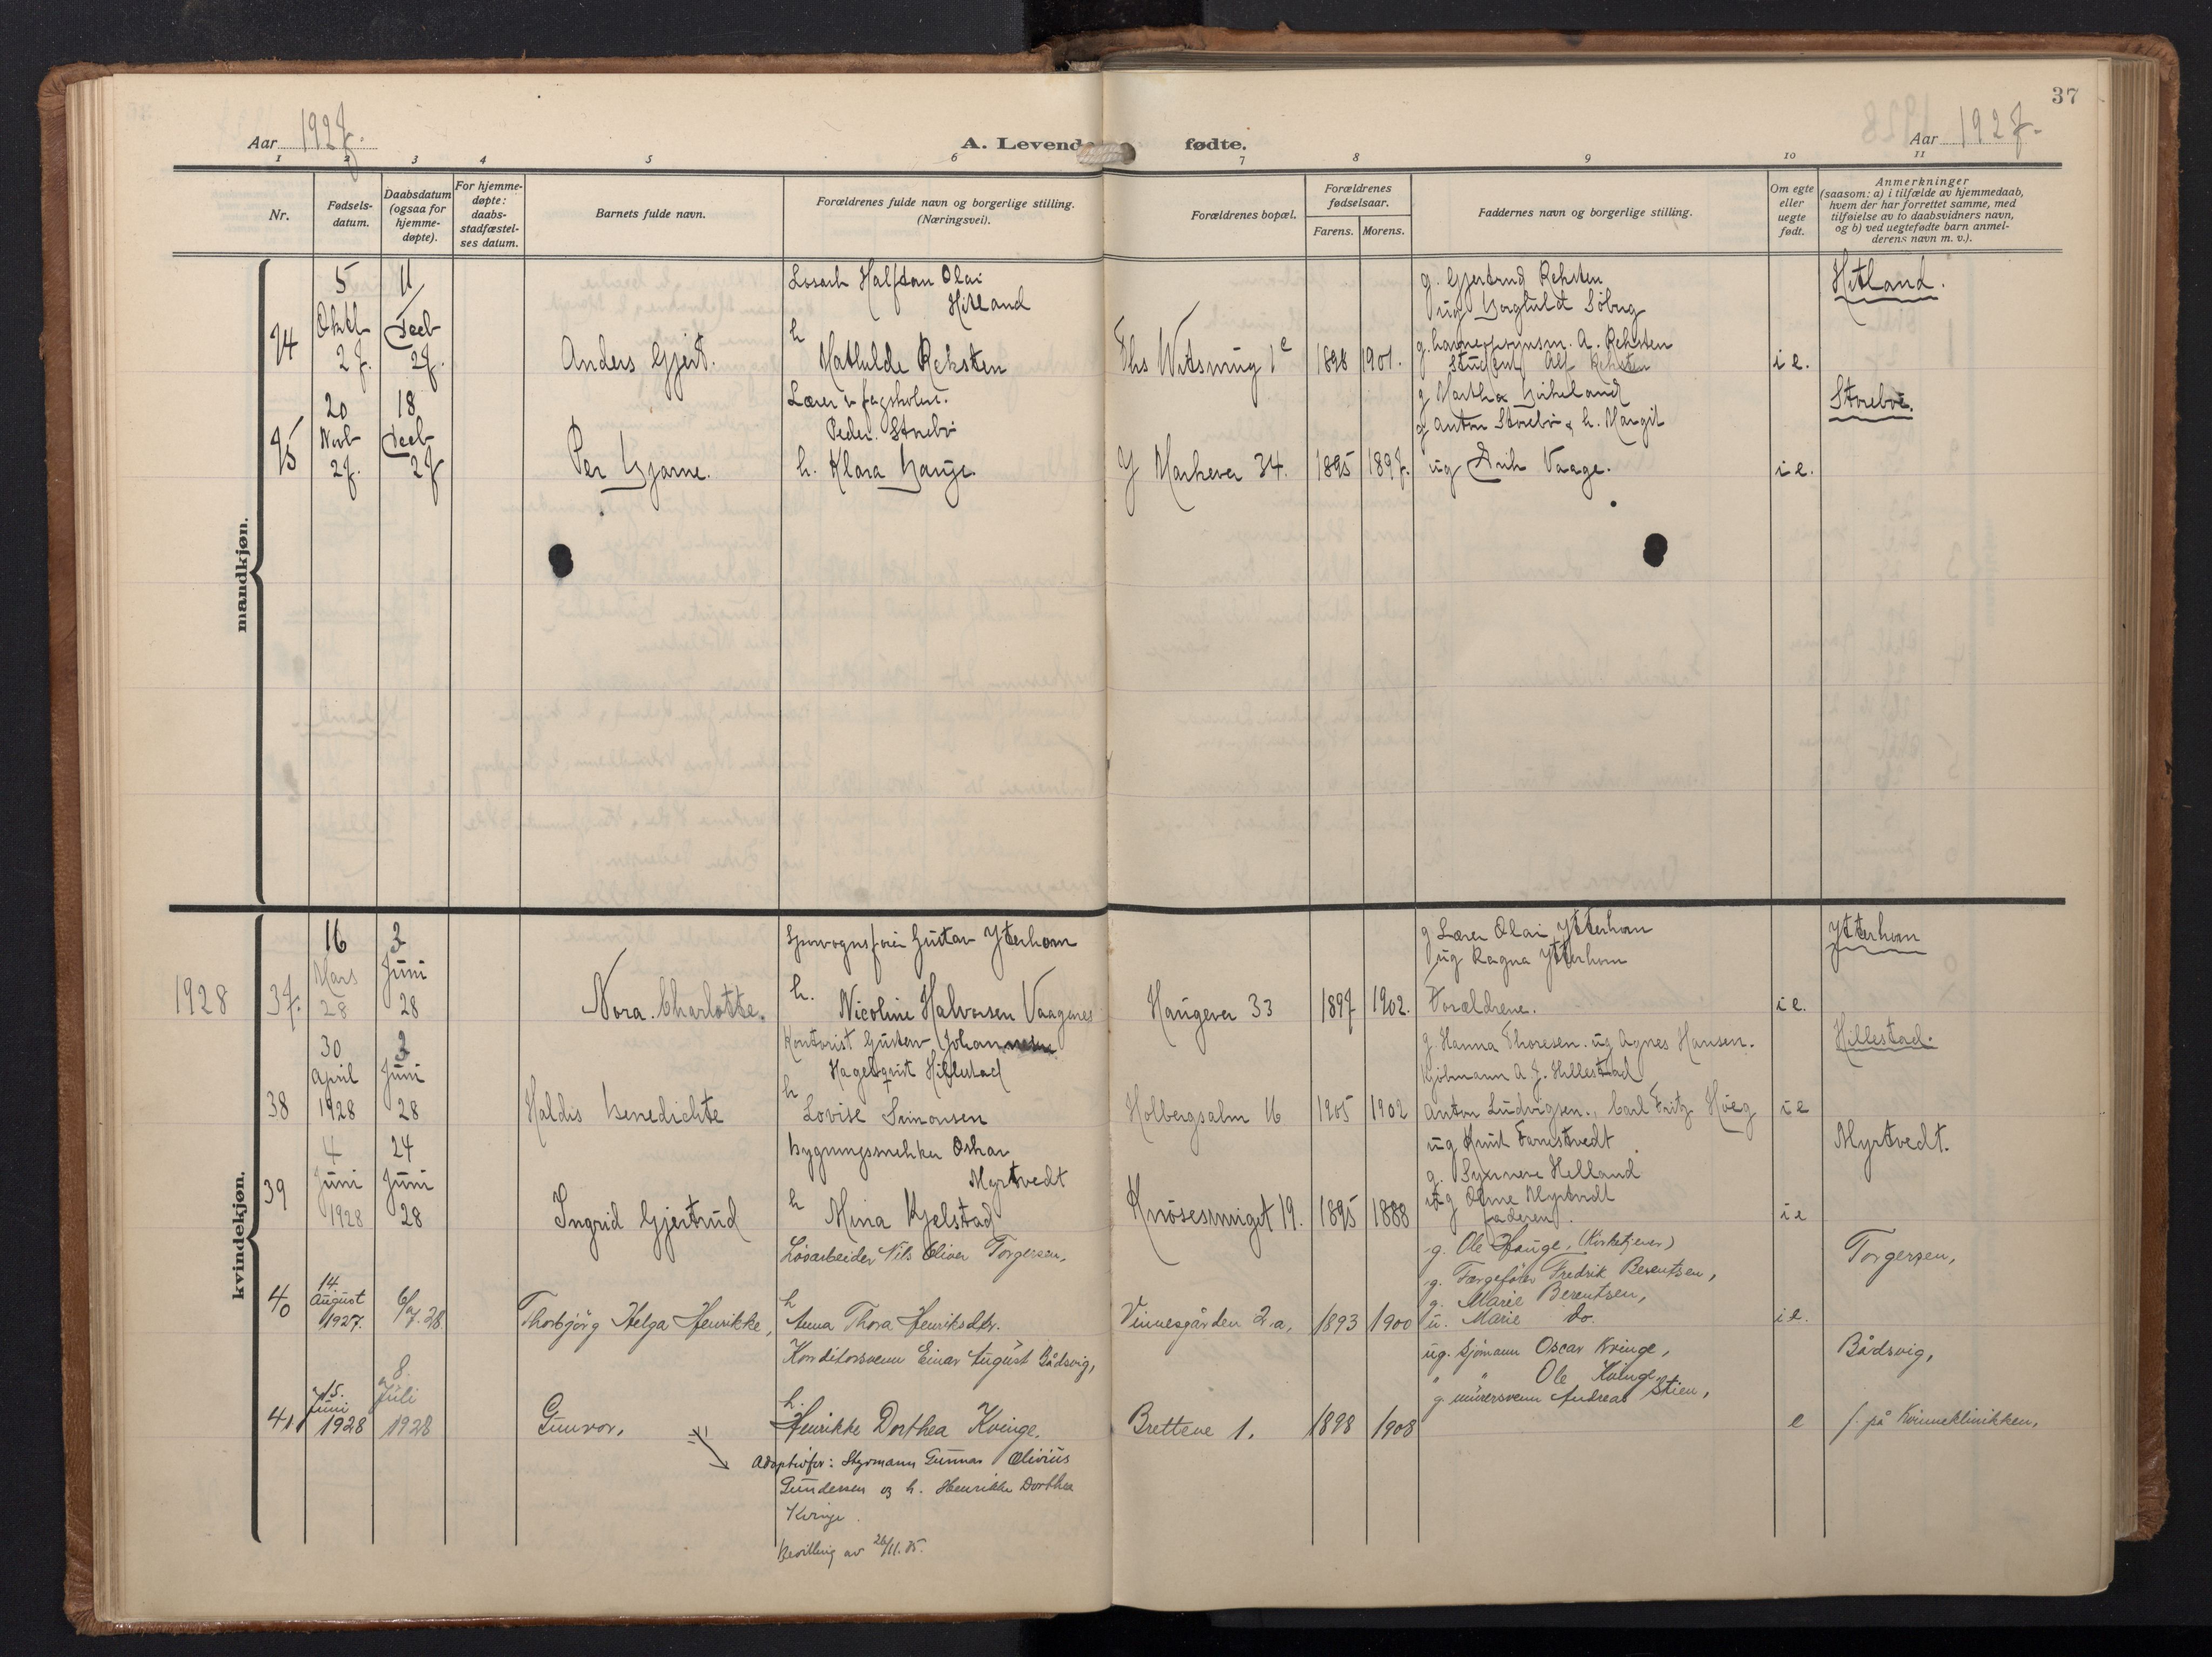 37
Aar 1927.
A. Levende fødte.
Aar 1927.
1 2 3 4 5 6 7 8 9 10 11
Nr.
Fødsels-
datum.
Daabsdatum
(ogsaa for
hjemme-
døpte).
For hjemme-
døpte:
daabs-
stadfæstel-
ses datum.
Barnets fulde navn.
Forældrenes fulde navn og borgerlige stilling.
(Næringsvei).
Forældrenes bopæl.
Forældrenes
fødselsaar.
Farens. Morens.
Faddernes navn og borgerlige stilling.
Om egte
eller
uegte
født.
Anmerkninger
(saasom: a) i tilfælde av hjemmedaab,
hvem der har forrettet samme, med
tilføielse av to daabsvidners navn,
og b) ved uegtefødte barn anmel-
derens navn m. v.).
mandkjøn.
74
5
Oktb
27.
11
Decb
27.
Anders Gjert.
Halfdan Olai
Hitland
h
Mathilde Reksten
1898 1901.
g. Gjertrud Reksten
ug Borghild Söbrg
A. Reksten
Student Alf Reksten
i e.
Hitland.
75
20
Novb
27.
18
Decb
27
Per Bjarne.
Lærer v fagskolen.
Peder Storebö
h. Klara Hauge.
Markevei 34.
1895 1897.
g Martha Birkeland
g Anton Storebö & h. Margit
ug Erik Vaage.
i e.
Storebö.
kvindekjøn.
1928
37.
16
Mars
28
3
Juni
28
Nora Charlotte.
Sporvognsfører Gustav Ytterhorn
h.
Nicoline Halvorsen Vaagenes
Haugevei 33
1897 1902.
g Lærer Olai Ytterhorn
ug Ragna Ytterhorn
Forældrene.
i e.
Ytterhorn
38
30
April
1928
3
Juni
28
Haldis Benedichte
Kontorist Gustav Johan
Hagelqvist Hillestad
h
Lovise Simonsen
Holbergsalm 16
1905 1902
g. Hanna Thoresen. ug Agnes Hansen.
Kjöbmann A. J. Hillestad
Anton Ludvigsen., Carl Fritz Höeg
i e
Hillestad.
39
4
Juni
1928
24
Juni
28
Ingrid Gjertrud
Bygningssnekker Oskar
Myrtvedt
h
Mina Kjelstad
Knösesmuget 19.
1895 1888
ug Knut Farnestvedt
g. Synneve Helland
ug Myrtvedt
faderen.
i e
Myrtvedt.
40
14
August
1927.
6/7.28
Thorbjörg Helga Henrikke,
Løsarbeider Nils Oliver Torgersen,
h
Anna Thora Henriksdtr.
Vinnesgården 2.a,
1893 1900
g. Ole Hauge, (Kirketjener)
g. Færgefører Fredrik Berentsen,
g. Marie Berentsen,
u. Marie do.
i e.
Torgersen,
41
15.
Juni
1928
8.
Juli
1928
Gunvor,
Konditorsvenn Einar August Bådsvig,
h.
Henrikke Dorthea Kvinge.
Bretteve 1.
1898 1908
ug. Sjömann Oscar Kvinge,
" " Ole Kvinge
g. murersvenn Andreas Stien,
e
Bådsvig,
f. på Kvinneklinikken,
Adoptivfor: Styrmann Gunnar Olivius
Gundersen og h. Henrikke Dorthea
Kvinge.
Bevilling av 26/11.35.